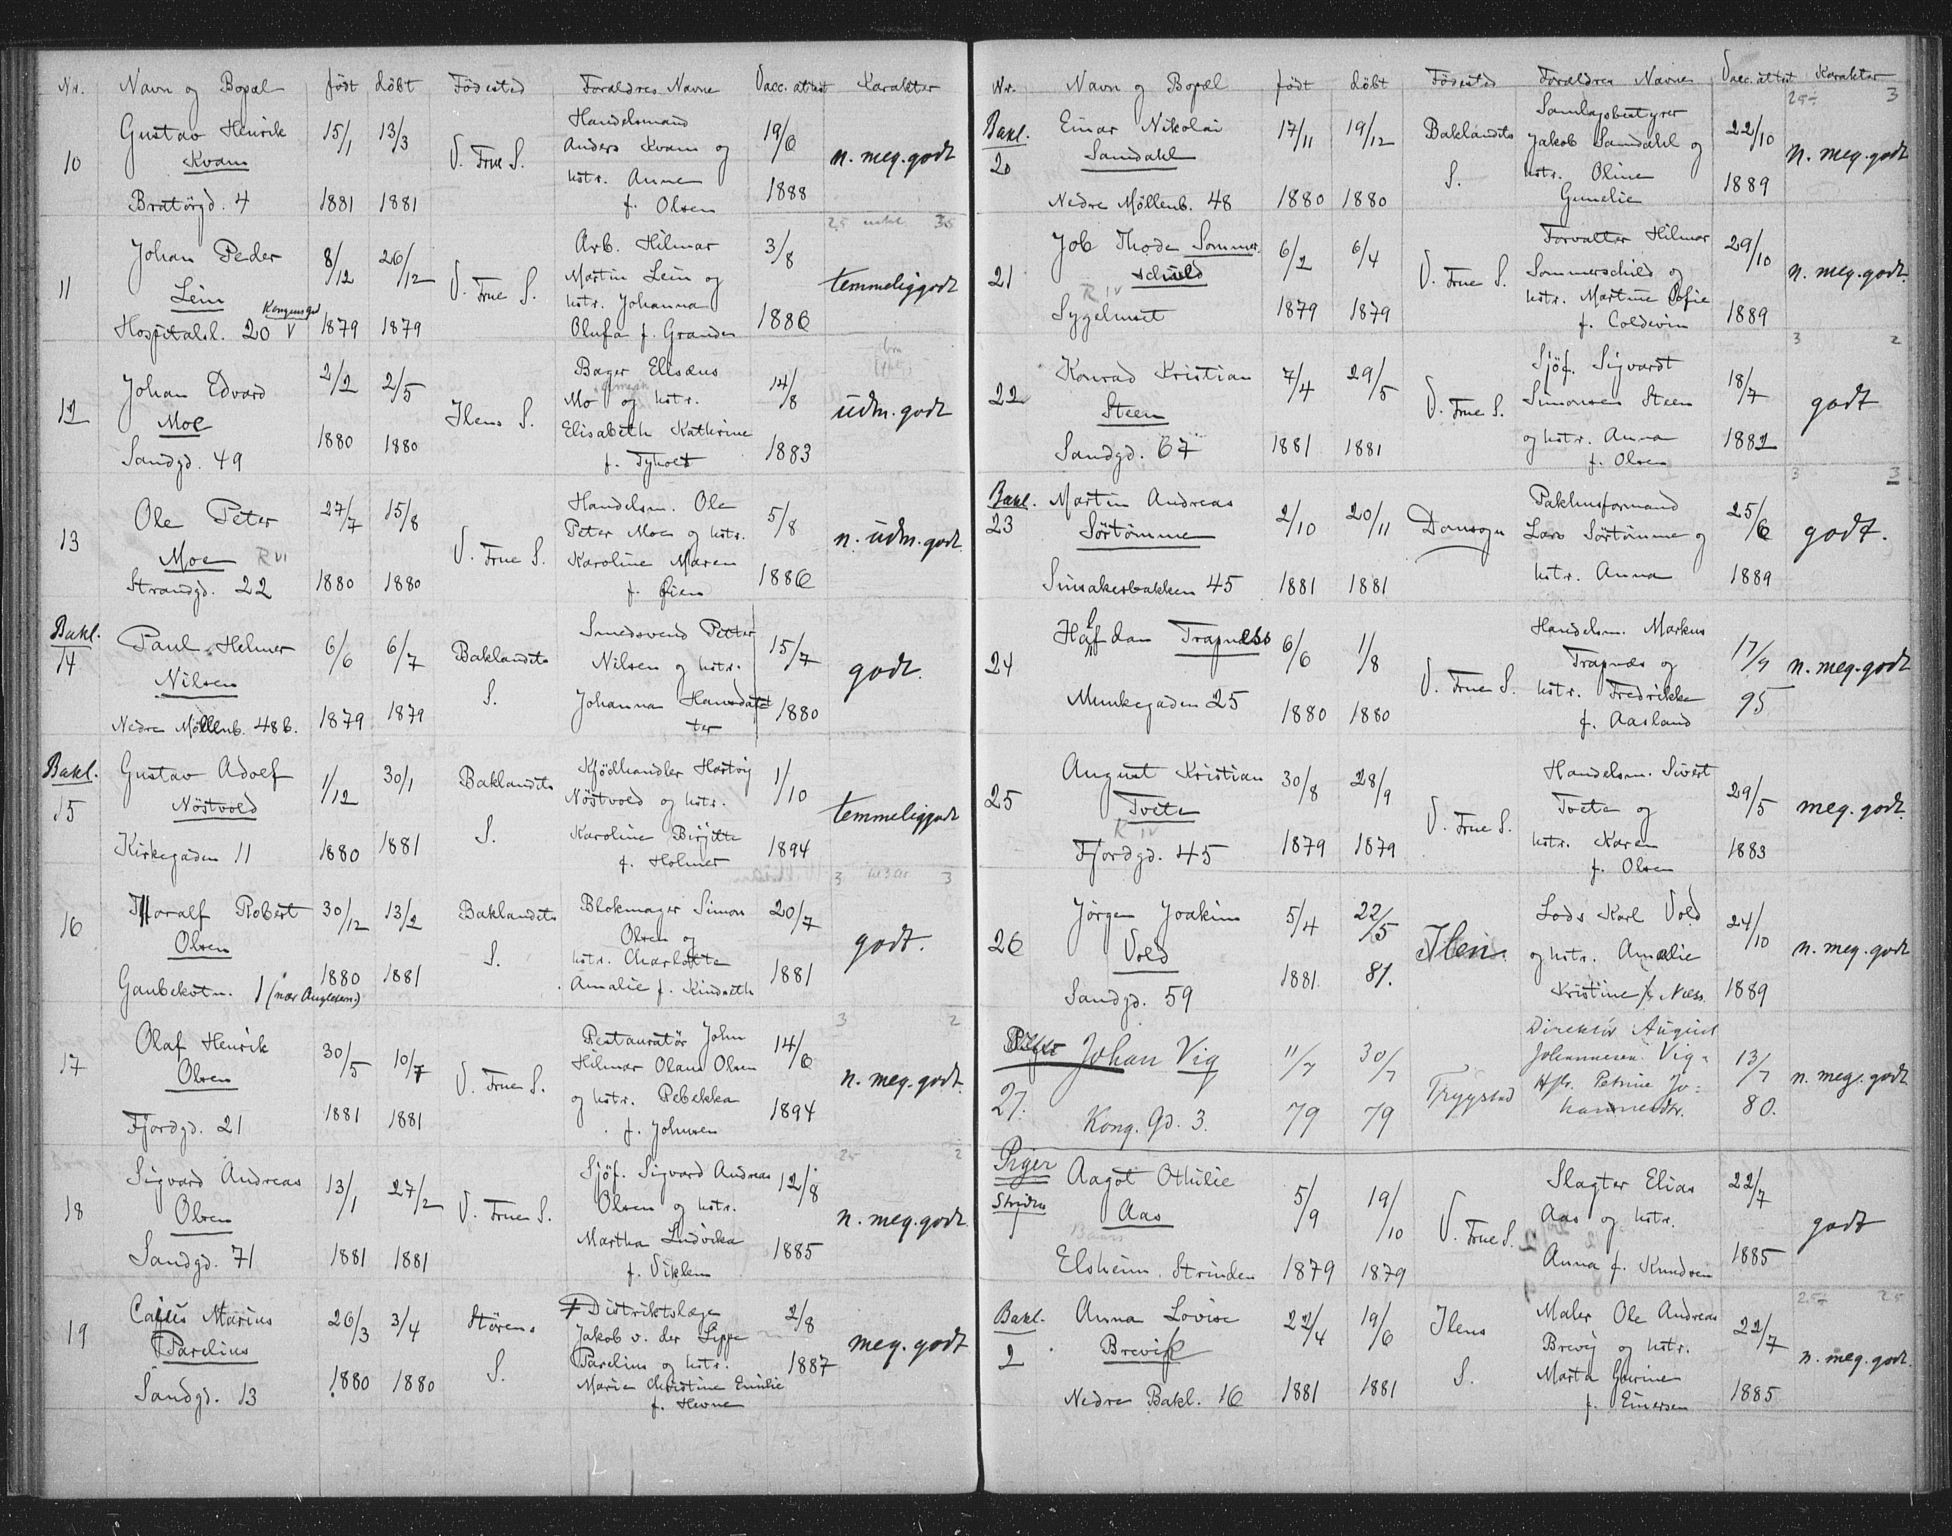 Nr. Navn og Bopæl født døbt Fødested Forældres Navne Vacc. attest Karakter
10 Gustav Henrik Kvam
Bratørgd. 4
15/1 1881 13/3 1881
V. Frue S.
Handelsmand
Anders Kvam og
hstr. Anne
f. Olsen
19/6 1888
n. meg. godt
11 Johan Peder
Lein
Hospitalsl. 20 Kongensgd V
8/12 1879 26/12 1879
V. Frue S.
Arb. Hilmar
Martin Lein og
hstr. Johanna
Olufa f. Grande
3/8 1886
temmeliggodt
12 Johan Edvard
Moe
Sandgd. 49
2/2 1880 2/5 1880
Ilens S.
Bager Elisæus
Mo og hstr.
Elisabeth Kathrine
f. Tyholt
14/8 1883
udm. godt
13 Ole Peter
Moe R VI
Strandgd. 22
27/7 1880 15/8 1880
V. Frue S.
Handelsm. Ole
Peter Moe og hstr.
Karoline Maren
f. Øien
5/8 1886
n. udm. godt.
Bakl.
14 Paul Helmer
Nilsen
Nedre Møllenb. 48 b.
6/6 1879 6/7 1879
Baklandets
S.
Smedsvend Petter
Nilsen og hstr.
Johanna Hansdat
ter
15/7 1880
godt.
Bakl.
15 Gustav Adolf
Nöstvold
Kirkegaden 11
1/12 1880 30/1 1881
Baklandets
S.
Kjödhandler Hartvig
Nöstvold og hstr.
Karoline Birgitte
f. Holmer
1/10 1894
temmeliggodt
16 Thoralf Robert
Olsen
Gaubekvtn. 1 (nær Anglesen)
30/12 1880 13/2 1881
Baklandets
S.
Blokmager Simon
Olsen og
hstr. Charlotte
Amalie f. Kindseth
20/7 1881
godt.
17 Olaf Henrik
Olsen
Fjordgd. 21
30/5 1881 10/7 1881
V. Frue S.
Restauratør John
Hilmar Olaus Olsen
og hstr. Rebekka
f. Johnsen
14/6 1894
n. meg. godt.
18 Sigvard Andreas
Olsen
Sandgd. 71
13/1 1881 27/2 1881
V. Frue S.
Sjöf. Sigvard Andreas
Olsen og hstr.
Martha Ludvika
f. Viklem
12/8 1885
n. meg. godt.
19 Cajus Marius
Parelius
Sandgd. 13
26/3 1880 3/4 1880
Störens
S.
+ Distriktslæge
Jakob v. der Lippe
Parelius og hstr.
Marie Christine Emilie
f. Hevne
2/8 1887
meg. godt
Nr. Navn og Bopæl født døbt Fødested Forældres Navne Vacc. attest Karakter
Bakl.
20 Einar Nikolai
Samdahl
Nedre Möllenb. 48
17/11 1880 19/12 1880
Baklandets
S.
Samlagsbestyrer
Jakob Samdahl og
hstr. Oline
Gunelie
22/10 1889
n. meg. godt
21 Job Thode Sommer
schield
R IV
Sygehuset
6/2 1879 6/4 1879
V. Frue S.
Forvalter Hilmar
Sommerschild og
hstr. Martine Sofie
f. Coldevin
29/10 1889
n. meg. godt.
22 Konrad Kristian
Steen
Sandgd. 67
7/4 1881 29/5 1881
V. Frue S.
Sjöf. Sigvardt
Simonsen Steen
og hstr. Anna
f. Olsen
18/7 1882
godt
Bakl.
23 Martin Andreas
Sörtömme
Sinsakerbakken 45
2/10 1881 20/11 1881
Domsogn
Pakhusformand
Lars Sörtömme og
hstr. Anna
25/6 1889
godt.
24 Halfdan Trapness
Munkegaden 25
6/6 1880 1/8 1880
V. Frue S.
Handelsm. Markus
Trapnæs og
hstr. Fredrikke
f. Aasland
17/9 95
n. meg. godt
25 August Kristian
Tveta
R IV
Fjordgd. 45
30/8 1879 28/9 1879
V. Frue S.
Handelsm. Sivert
Tveta og
hstr. Karen
f. Olsen
29/5 1883
meg. godt.
26 Jørgen Joakim
Vold
Sandgd. 59
5/4 1881. 22/5 81.
Ilen.
Lods Karl Vold
og hstr. Amalie
Kristine f. Næss.
24/10 1889
n. meg. godt
27. Johan Vig
Kong. Gd. 3.
11/7 79 30/7 79
Trygstad
Direktör August
Johannesen Vig
Hstr. Petrine Jo-
hannesdtr.
13/7 80.
n. meg. godt
Piger
Strinden
1 Aagot Othilie
Aas
Elsheim. Strinden
5/9 1879 19/10 1879
V. Frue S.
Slagter Elias
Aas og hstr.
Anna f. Knudsen
22/7 1885
godt
Bakl.
2 Anna Lovise
Brevik
Nedre Bakl. 16
22/4 1881 19/6 1881
Ilens
S.
Maler Ole Andreas
Brevig og hstr.
Marta Gurine
f. Einersen
22/7 1885
n. meg. godt.